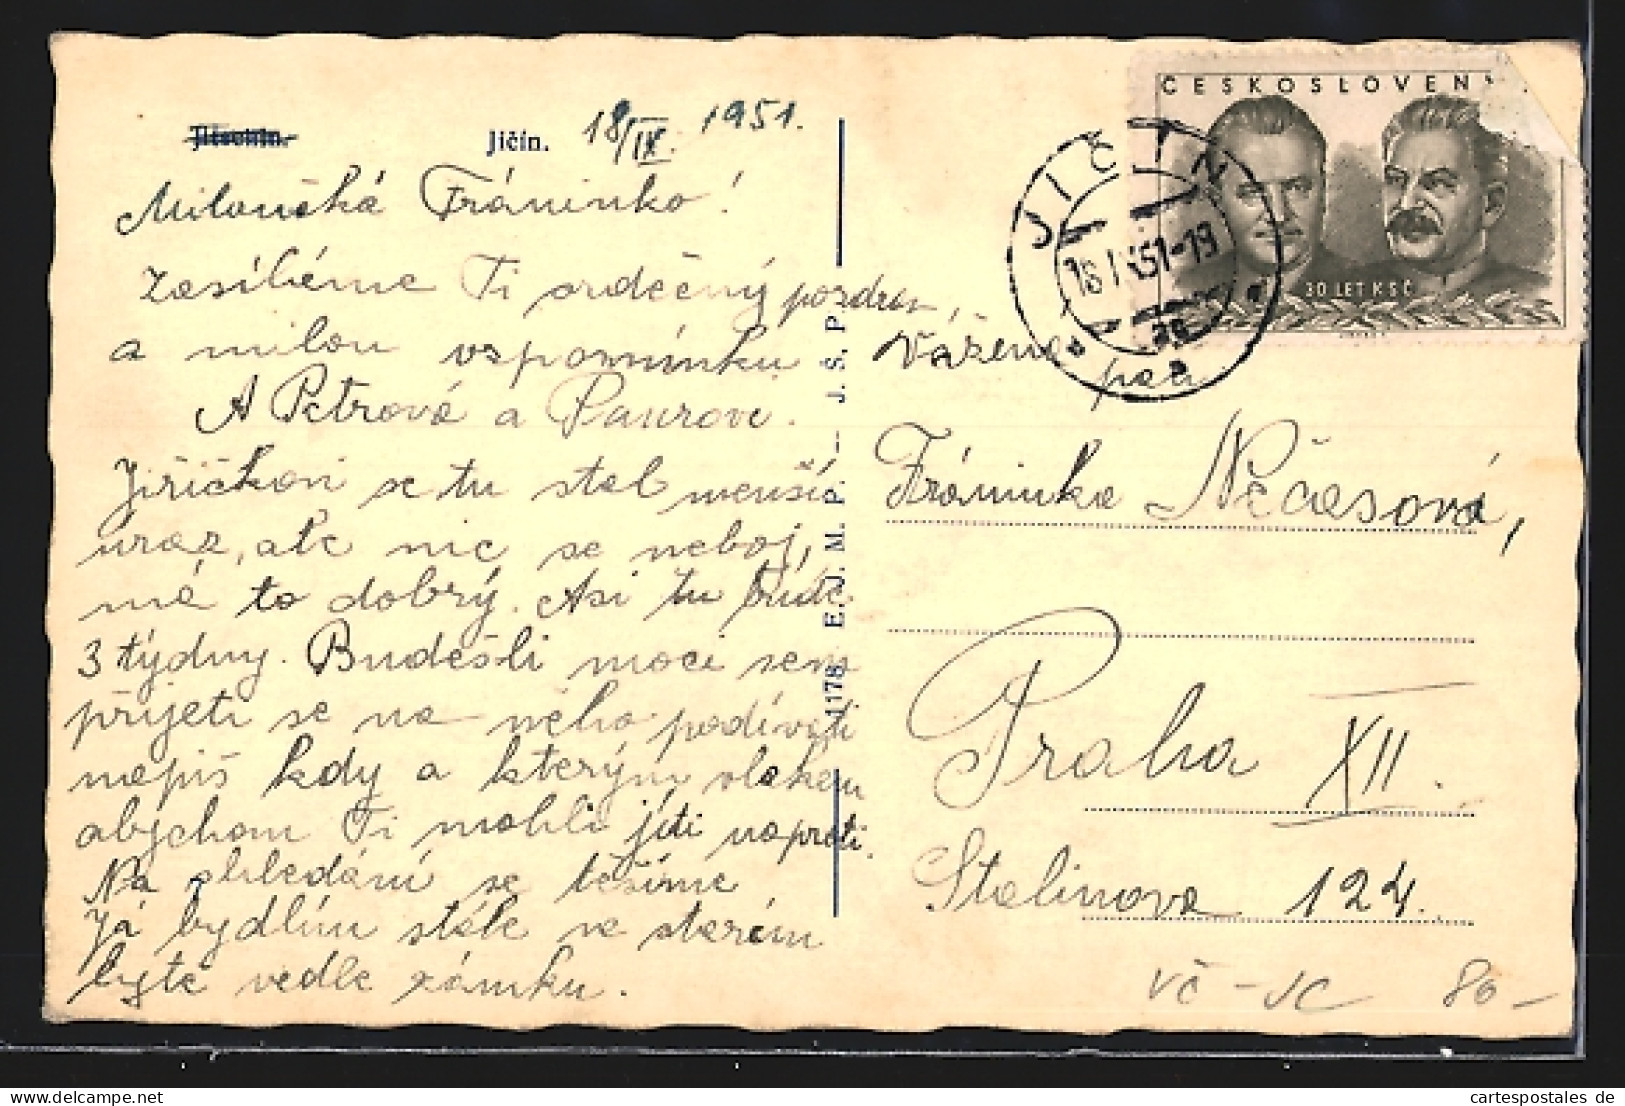 Jičín. 18/IX. 1951.
Miloušká Fráninko!
Zasíláme Ti srdečný pozdrav,
a milou vzpomínku
A Petrová a Paurovi.
Jiříčkovi se tu stal menší
úraz, ale nic se neboj,
má to dobrý. Asi tu bude
3 týdny. Budeš-li moci sem
přijeti se na něho podívati
napiš kdy a kterým vlakem
abychom Ti mohli jíti naproti.
Na shledání se těšíme
Já bydlím stále ve starém
bytě vedle zámku.
1178 E. J. M. P. — J. S. P.
ČESKOSLOVEN
30 LET KSČ
JIČÍN
18.IX.51-19
Vážená
paní
Fráninka Nečasová,
Praha XII.
Stalinova 124.
VČ - JC 80-
cartespostales de